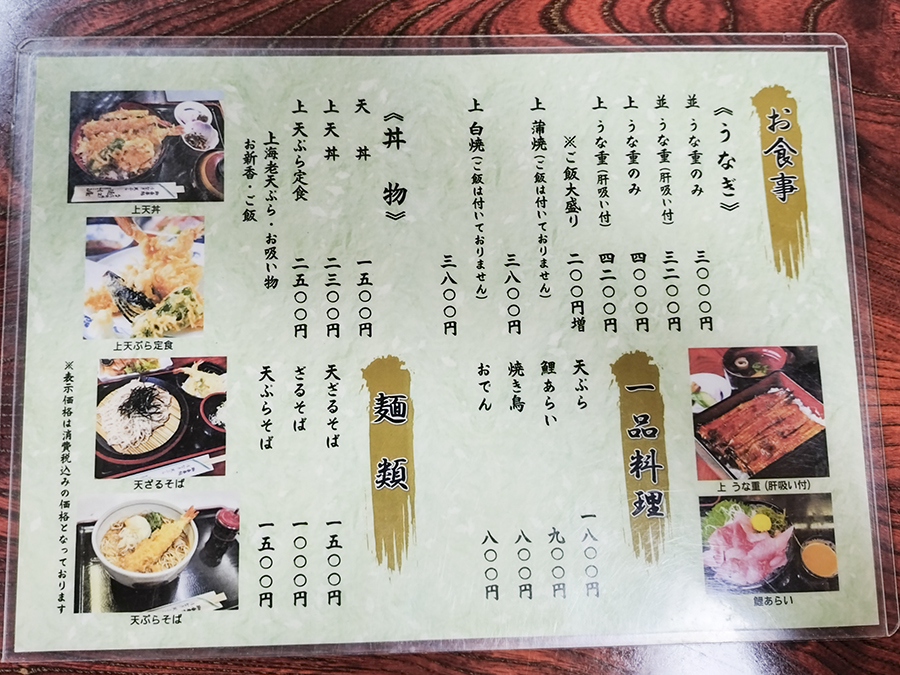 お食事
《うなぎ》
並 うな重のみ 三〇〇〇円
並 うな重(肝吸い付) 三二〇〇円
上 うな重のみ 四〇〇〇円
上 うな重(肝吸い付) 四二〇〇円
※ご飯大盛り 二〇〇円増
上 蒲焼(ご飯は付いておりません) 三八〇〇円
上 白焼(ご飯は付いておりません) 三八〇〇円
《丼 物》
天 丼 一五〇〇円
上 天 丼 二三〇〇円
上 天ぷら定食 二五〇〇円
上海老天ぷら・お吸い物
お新香・ご飯
一品料理
天ぷら 一八〇〇円
鯉あらい 九〇〇円
焼き鳥 八〇〇円
おでん 八〇〇円
麺 類
天ざるそば 一五〇〇円
ざるそば 一〇〇〇円
天ぷらそば 一五〇〇円
※表示価格は消費税込みの価格となっております
上天丼
上天ぷら定食
天ざるそば
天ぷらそば
上 うな重(肝吸い付)
鯉あらい